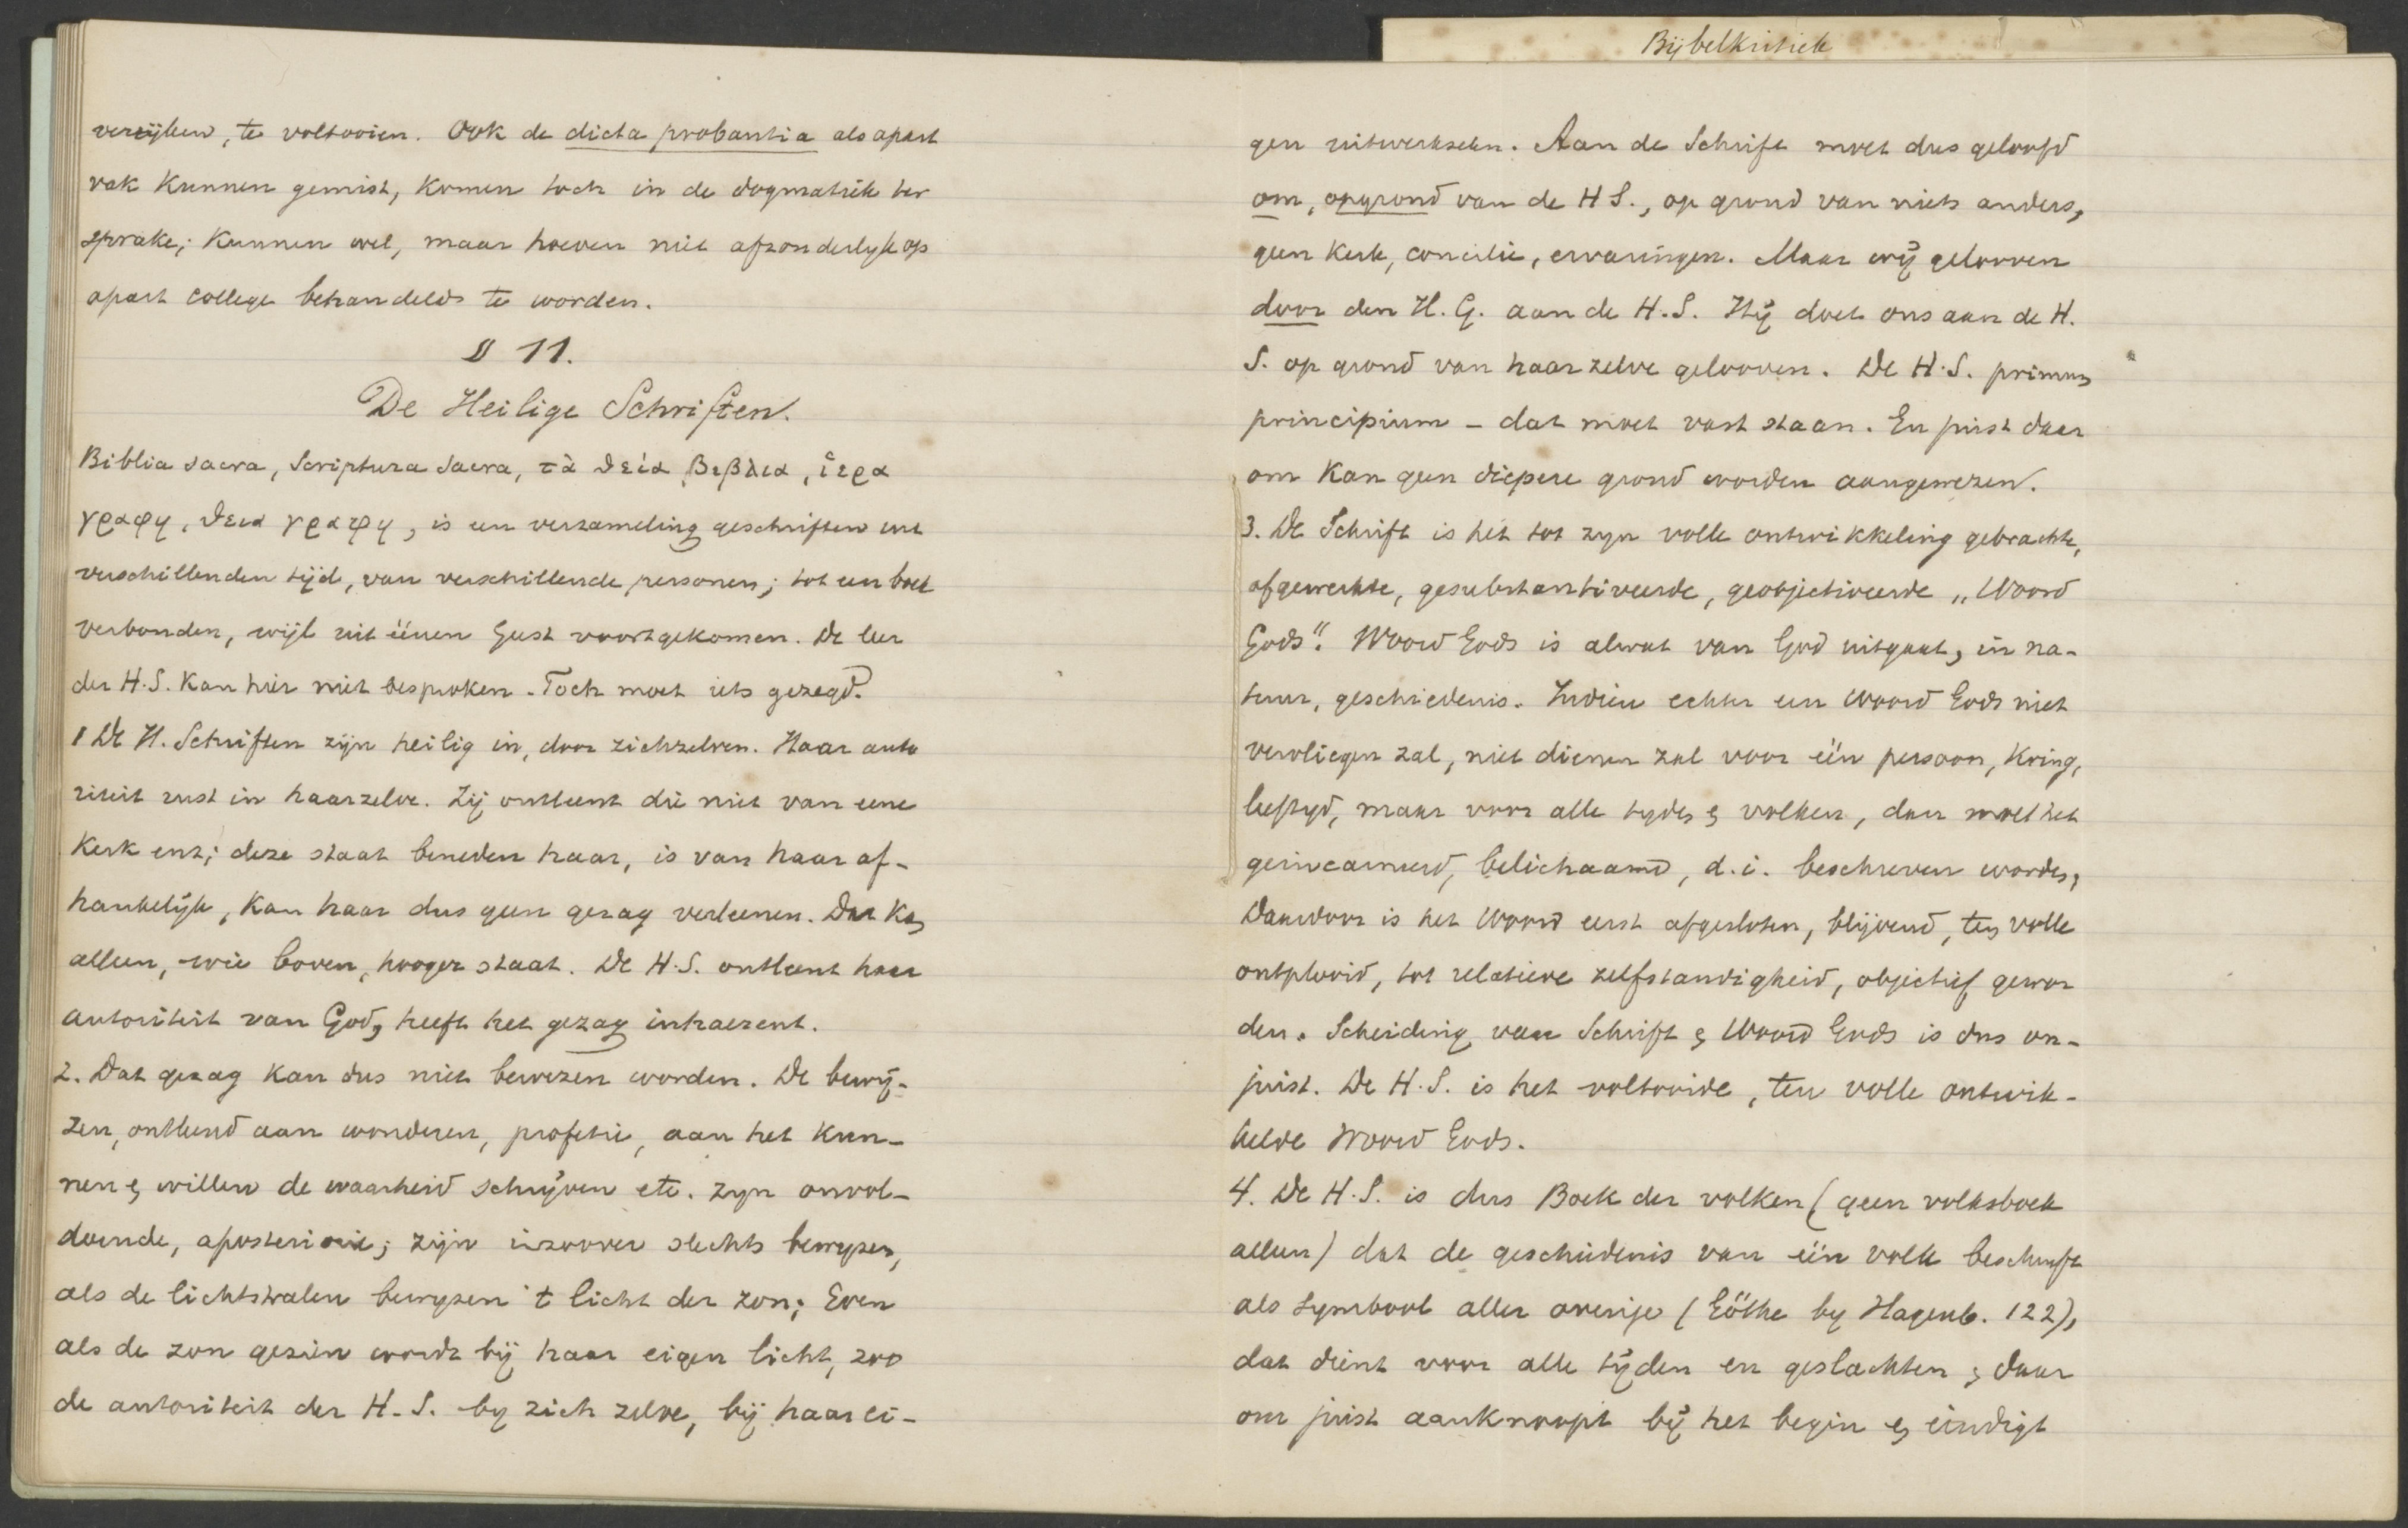 verrijken, te voltooien. Ook de dicta probantia als apart
vak kunnen gemist, komen toch in de dogmatiek ter
sprake; kunnen wel, maar hoeven niet afzonderlijk op
apart college behandeld te worden.
§ 11.
De Heilige Schriften.
Biblia sacra, Scriptura Sacra, τὰ θεία βιβλια, ἱερα
γραφη, θεια γραφη, is een verzameling geschriften uit
verschillenden tijd, van verschillende personen; tot een boek
verbonden, wijl uit éénen Geest voortgekomen. De leer
der H.S. kan hier niet besproken. Toch moet iets gezegd.
1 De H. Schriften zijn heilig in, door zichzelven. Haar auto
riteit rust in haarzelve. Zij ontleent die niet van eene
Kerk enz; deze staat beneden haar, is van haar af-
hankelijk, kan haar dus geen gezag verleenen. Dat kan
alleen, wie boven, hooger staat. De H.S. ontleent haar
autoriteit van God, heeft het gezag inhaerent.
2. Dat gezag kan dus niet bewezen worden. De bewij-
zen, ontleend aan wonderen, profetie, aan het kun-
nen en willen de waarheid schrijven etc. zyn onvol-
doende, aposteriori; zijn inzoover slechts bewyzen,
als de lichtstralen bewyzen 't licht der zon; Even
als de zon gezien wordt bij haar eigen licht, zoo
de autoriteit der H.S. by zich zelve, bij haar ei-
Bijbelkritiek
gen uitwerkselen. Aan de Schrift moet dus geloofd
om, op grond van de H S., op grond van niets anders,
geen Kerk, concilie, ervaringen. Maar wij gelooven
door den H. G. aan de H.S. Hij doet ons aan de H.
S. op grond van haar zelve gelooven. De H.S. primum
principium - dat moet vast staan. En juist daar
om kan geen diepere grond worden aangewezen.
3. De Schrift is het tot zyn volle ontwikkeling gebrachte,
afgewerkte, gesubstantiveerde, geobjectiveerde „Woord
Gods“. Woord Gods is alwat van God uitgaat, in na-
tuur, geschiedenis. Indien echter een Woord Gods niet
vervliegen zal, niet dienen zal voor één persoon, kring,
leeftyd, maar voor alle tyden en volken, dan moet het
geincarneerd, belichaamd, d.i. beschreven worden,
Daardoor is het Woord eerst afgesloten, blijvend, ten volle
ontplooid, tot relatieve zelfstandigheid, objectief gewor
den. Scheiding van Schrift en Woord Gods is dus on-
juist. De H.S. is het voltooide, ten volle ontwik-
kelde Woord Gods.
4. De H.S. is dus Boek der volken (geen volksboek
alleen) dat de geschiedenis van één volk beschryft
als symbool aller overige (Göthe by Hagenb. 122),
dat dient voor alle tijden en geslachten en daar
om juist aanknoopt bij het begin en eindigt